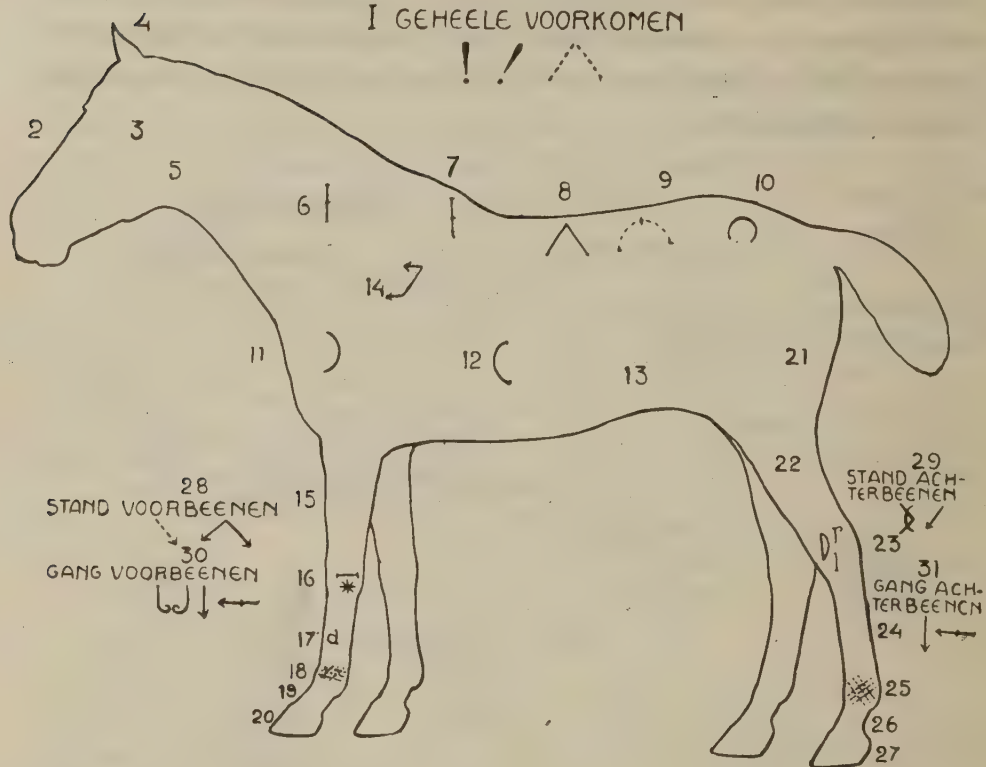 I GEHEELE VOORKOMEN
! !
4
2
3
5
7
6
8
9
10
14
11
12
13
21
22
28
STAND VOORBEENEN
15
30
GANG VOORBEENEN
16
29
STAND ACH-
TERBEENEN
23
D r l
31
GANG ACH-
TERBEENEN
17 d
24
18
19
25
20
26
27